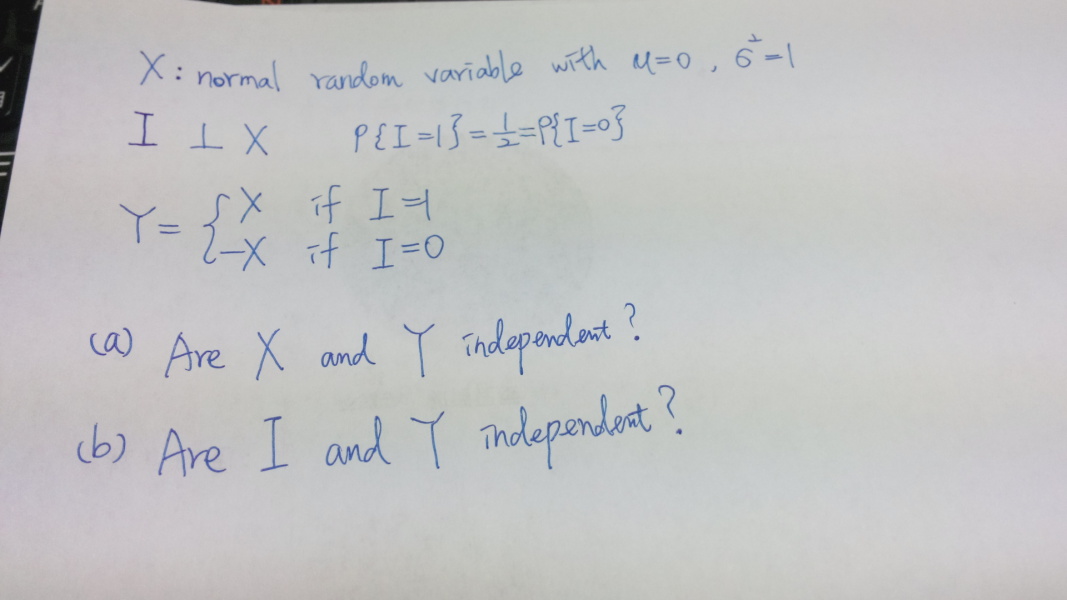 X: normal random variable with μ=0, σ²=1
I ⊥ X P{I=1}=1/2=P{I=0}
Y= { X if I=1
-X if I=0
(a) Are X and Y independent?
(b) Are I and Y independent?